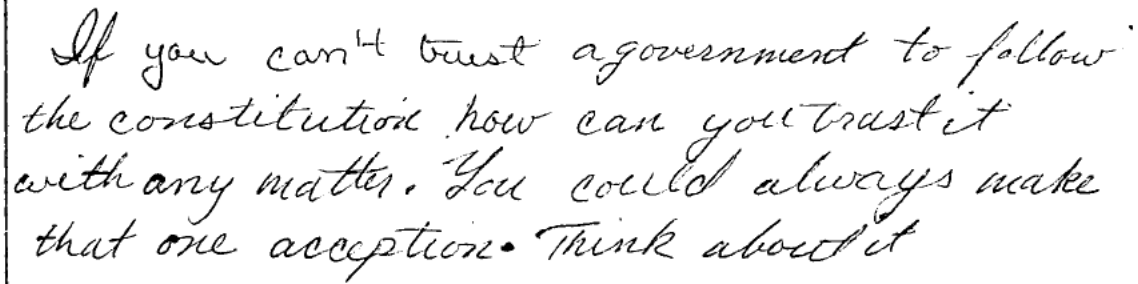 If you can't trust a government to follow
the constitution how can you trust it
with any matter. You could always make
that one acception. Think about it